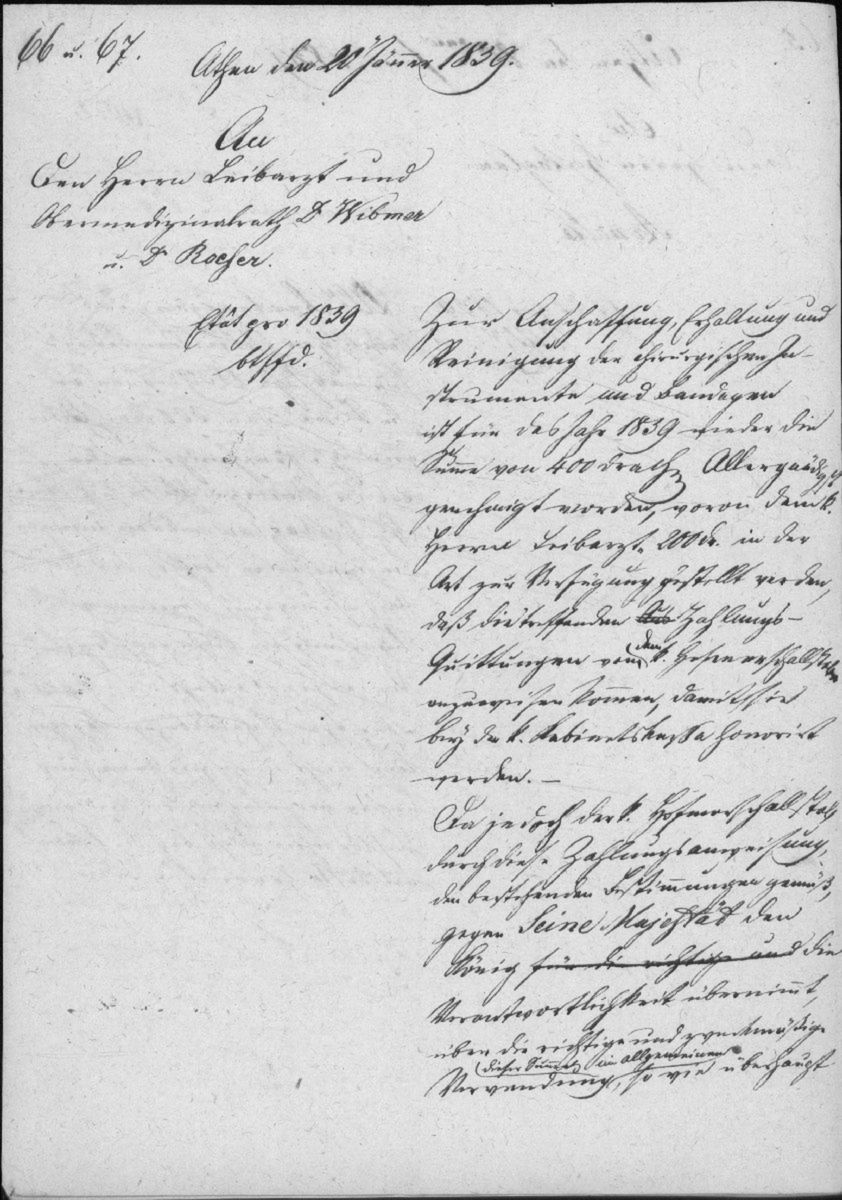 66 u. 67.
Athen den 20 Jänner 1839.
An
Den Herrn Leibarzt und
Obermedizinalrath Dr Wibmer
u. Dr Roeser.
Etat pro 1839
btffd.
Zur Anschaffung, Erhaltung und
Reinigung der chirurgischen In-
strumente und Bandagen
ist für das Jahr 1839 wieder die
Summe von 400 Drach. Allergnädigst
genehmigt worden, wovon dem k.
Herrn Leibarzt 200 dr. in der
Art zur Verfügung gestellt werden,
daß die treffenden Zahlungs-
Quittungen vom k. Hofmarschallstabe
anzuweisen kommen, damit sie
bey der k. Kabinetskassa honorirt
werden. –
Da jedoch der k. Hofmarschallstab
durch diese Zahlungsanweisung,
den bestehenden Bestimmungen gemäß,
gegen Seine Majestät den
König für die richtige und die
Verantwortlichkeit übernimmt,
über die richtige und zweckmäßige
dieser Summe im allgemeinen
Verwendung, so wie überhaupt